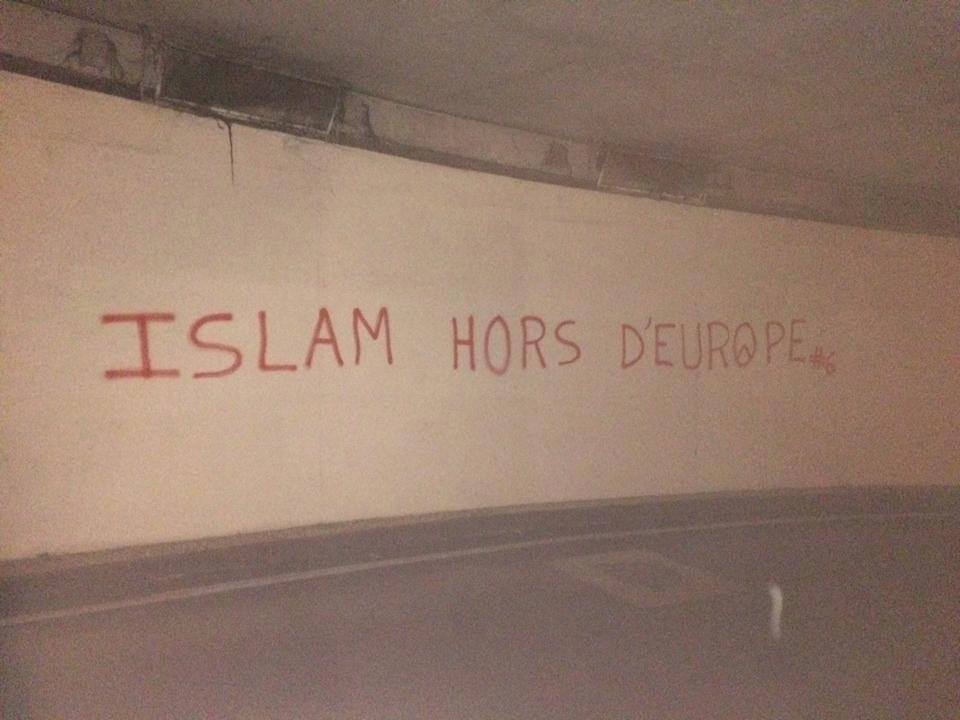 ISLAM HORS D'EUROPE #6